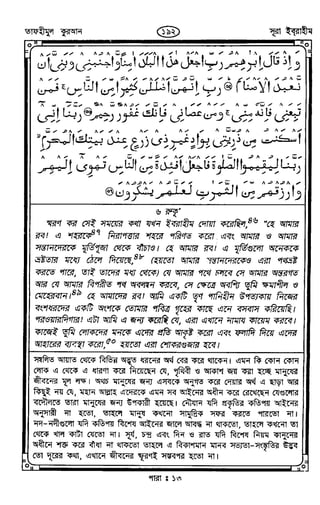 তাফহীমুল কুরআন
১৯২
সূরা ইবরাহীম
وَإِذْ قَالَ إِبْرٰهِيْمُ رَبِّ اجْعَلْ هٰذَا الْبَلَدَ اٰمِنًا وَّاجْنُبْنِيْ وَبَنِيَّ اَنْ
نَّعْبُدَ الْاَصْنَامَ ۞ رَبِّ اِنَّهُنَّ اَضْلَلْنَ كَثِيْرًا مِّنَ النَّاسِ ۚ فَمَنْ
تَبِعَنِيْ فَاِنَّهٗ مِنِّيْ ۚ وَمَنْ عَصَانِيْ فَاِنَّكَ غَفُوْرٌ رَّحِيْمٌ ۞ رَبَّنَا اِنِّيْ
اَسْكَنْتُ مِنْ ذُرِّيَّتِيْ بِوَادٍ غَيْرِ ذِيْ زَرْعٍ عِنْدَ بَيْتِكَ الْمُحَرَّمِ ۙ
رَبَّنَا لِيُقِيْمُوا الصَّلٰوةَ فَاجْعَلْ اَفْئِدَةً مِّنَ النَّاسِ تَهْوِيْ اِلَيْهِمْ
وَارْزُقْهُمْ مِّنَ الثَّمَرٰتِ لَعَلَّهُمْ يَشْكُرُوْنَ ۞
৬ রুকূ'
স্মরণ কর সেই সময়ের কথা যখন ইবরাহীম দোয়া করেছিল,৪৬ "হে আমার
রব! এ শহরকে৪৭ নিরাপত্তার শহরে পরিণত করো এবং আমার ও আমার
সন্তানদেরকে মূর্তিপূজা থেকে বাঁচাও। হে আমার রব! এ মূর্তিগুলো অনেককে
ভ্রষ্টতার মধ্যে ঠেলে দিয়েছে,৪৮ (হয়তো আমার সন্তানদেরকেও এরা পথভ্রষ্ট
করতে পারে, তাই তাদের মধ্য থেকে) যে আমার পথে চলবে সে আমার অন্তরগত
আর যে আমার বিপরীত পথ অবলম্বন করবে, সে ক্ষেত্রে অবশ্যি তুমি ক্ষমাশীল ও
মেহেরবান।৪৯ হে আমাদের রব! আমি একটি তৃণ পানিহীন উপত্যকায় নিজের
বংশধরদের একটি অংশকে তোমার পবিত্র গৃহের কাছে এনে বসবাস করিয়েছি।
পরওয়ারদিগার! এটা আমি এ জন্য করেছি যে, এরা এখানে নামায কায়েম করবে।
কাজেই তুমি লোকদের মনকে এদের প্রতি আকৃষ্ট করো এবং ফলাদি দিয়ে এদের
আহারের ব্যবস্থা করো,৫০ হয়তো এরা শোকরগুজার হবে।
সম্বলিত আয়াত থেকে বিভিন্ন অদ্ভুত ধরনের অর্থ বের করে থাকেন। এমন কি কোন কোন
লোক এ থেকে এ ধারণা করে নিয়েছেন যে, পৃথিবী ও আকাশ জয় করা হচ্ছে মানুষের
জীবনের মূল লক্ষ। অথচ মানুষের জন্য এসবকে অনুগত করে দেয়ার অর্থ এ ছাড়া আর
কিছুই নয় যে, মহান আল্লাহ এদেরকে এমন সব আইনের অধীন করে রেখেছেন যেগুলোর
বদৌলতে তারা মানুষের জন্য উপকারী হয়েছে। নৌযান যদি প্রকৃতির কতিপয় আইনের
অনুসারী না হতো, তাহলে মানুষ কখনো সামুদ্রিক সফর করতে পারতো না।
নদ-নদীগুলো যদি কতিপয় বিশেষ আইনের জালে আবদ্ধ না থাকতো, তাহলে কখনো তা
থেকে খাল কাটা যেতো না। সূর্য, চন্দ্র এবং দিন ও রাত যদি বিশেষ নিয়ম কানুনের
অধীনে শক্ত করে বাঁধা না থাকতো তাহলে এ বিকাশমান মানব সভ্যতা-সংস্কৃতির উদ্ভব
তো দূরের কথা, এখানে জীবনের স্ফূরণই সম্ভবপর হতো না।
পারা : ১৩